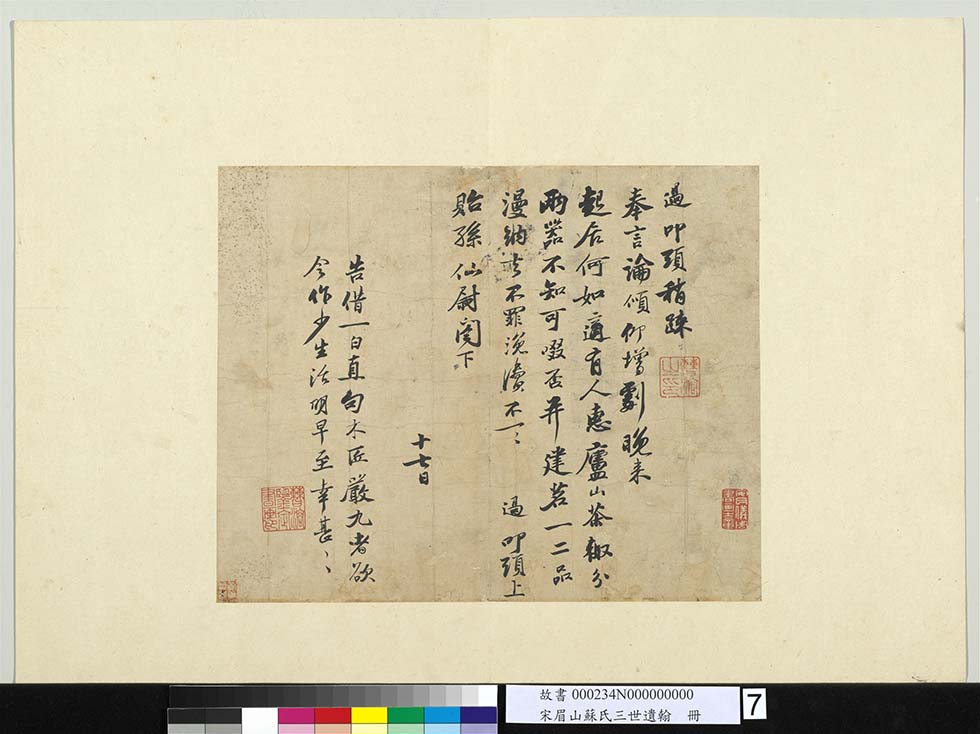 過叩頭稍疎
奉言論傾仰增劇晚来
起居何如適有人惠廬山茶輙分
兩器不知可啜否并建茗一二品
漫納去不罪浼瀆不一〻 過叩頭上
貽孫仙尉閤下
十七日
告借一白直勾木匠嚴九者欲
令作少生活明早至幸甚〻
故書 000234N000000000
宋眉山蘇氏三世遺翰 冊
7